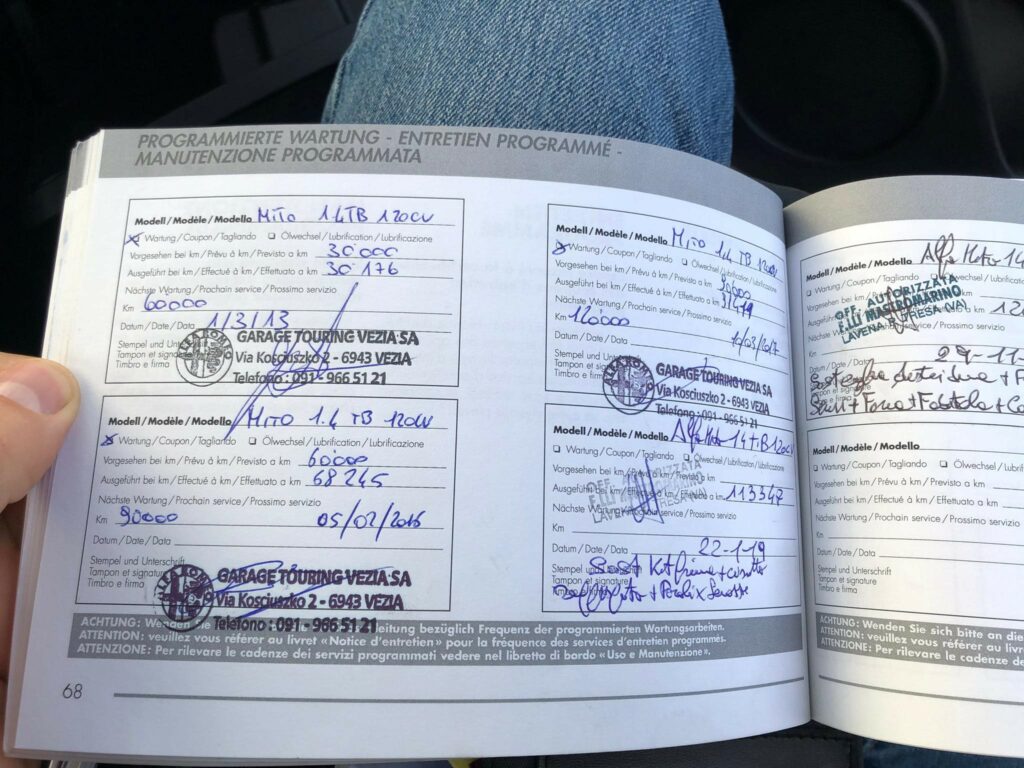 PROGRAMMIERTE WARTUNG - ENTRETIEN PROGRAMMÉ -
MANUTENZIONE PROGRAMMATA
Modell / Modèle / Modello MiTo 1.4 TB 120CV
Wartung / Coupon / Tagliando Ölwechsel / Lubrification / Lubrificazione
Vorgesehen bei km / Prévu à km / Previsto a km 30000
Ausgeführt bei km / Effectué à km / Effettuato a km 30176
Nächste Wartung / Prochain service / Prossimo servizio
Km 60000
Datum / Date / Data 1/3/13
Stempel und
Tampon et
Timbro e firma
ALFA ROMEO
GARAGE TOURING VEZIA SA
Via Kosciuszko 2 - 6943 VEZIA
Telefono : 091 - 966 51 21
Modell / Modèle / Modello MiTo 1.4 TB 120CV
Wartung / Coupon / Tagliando Ölwechsel / Lubrification / Lubrificazione
Vorgesehen bei km / Prévu à km / Previsto a km 60000
Ausgeführt bei km / Effectué à km / Effettuato a km 68245
Nächste Wartung / Prochain service / Prossimo servizio
Km 90000 05/02/2016
Datum / Date / Data
Stempel und Unterschrift
Tampon et signature
Timbro e firma
GARAGE TOURING VEZIA SA
Via Kosciuszko 2 - 6943 VEZIA
Telefono : 091 - 966 51 21
Modell / Modèle / Modello MiTo 1.4 TB 120CV
Wartung / Coupon / Tagliando Ölwechsel / Lubrification / Lubrificazione
Vorgesehen bei km / Prévu à km / Previsto a km 90000
Ausgeführt bei km / Effectué à km / Effettuato a km
Nächste Wartung / Prochain service / Prossimo servizio
Km 120000
Datum / Date / Data 10/03/2017
Stempel und
Tampon et
Timbro e firma
GARAGE TOURING VEZIA SA
Via Kosciuszko 2 - 6943 VEZIA
Telefono : 091 - 966 51 21
Modell / Modèle / Modello Alfa Mito 1.4 TB 120CV
Wartung / Coupon / Tagliando Ölwechsel / Lubrification / Lubrificazione
Vorgesehen bei km / Prévu à km / Previsto a km
Ausgeführt bei km / Effectué à km / Effettuato a km 113347
Nächste Wartung / Prochain service / Prossimo servizio
Km
Datum / Date / Data 22-1-19
Stempel und
Tampon et signature
Timbro e firma
ACHTUNG: Wenden Sie bezüglich Frequenz der programmierten Wartungsarbeiten.
ATTENTION: veuillez vous référer au livret « Notice d'entretien » pour la fréquence des services d'entretien programmés.
ATTENZIONE: Per rilevare le cadenze dei servizi programmati vedere nel libretto di bordo « Uso e Manutenzione ».
68
Modell / Modèle / Modello Alfa Mito 14
Wartung / Coupon / Tagliando
OFF. AUTORIZZATA
F.LLI MASTROMARINO
LAVENA P. TRESA (VA)
Km
Datum / Date / Data 29-11
Modell / Modèle / Modello
Wartung / Coupon / Tagliando Ölwechsel / Lubrification
Vorgesehen bei km / Prévu à km / Previsto a km
Ausgeführt bei km / Effectué à km / Effettuato a km
Nächste Wartung / Prochain service / Prossimo servizio
Km
Datum / Date / Data
Stempel und Unterschrift
Tampon et signature
Timbro e firma
ACHTUNG: Wenden Sie sich bitte an die
ATTENTION: veuillez vous référer au livr
ATTENZIONE: Per rilevare le cadenze de